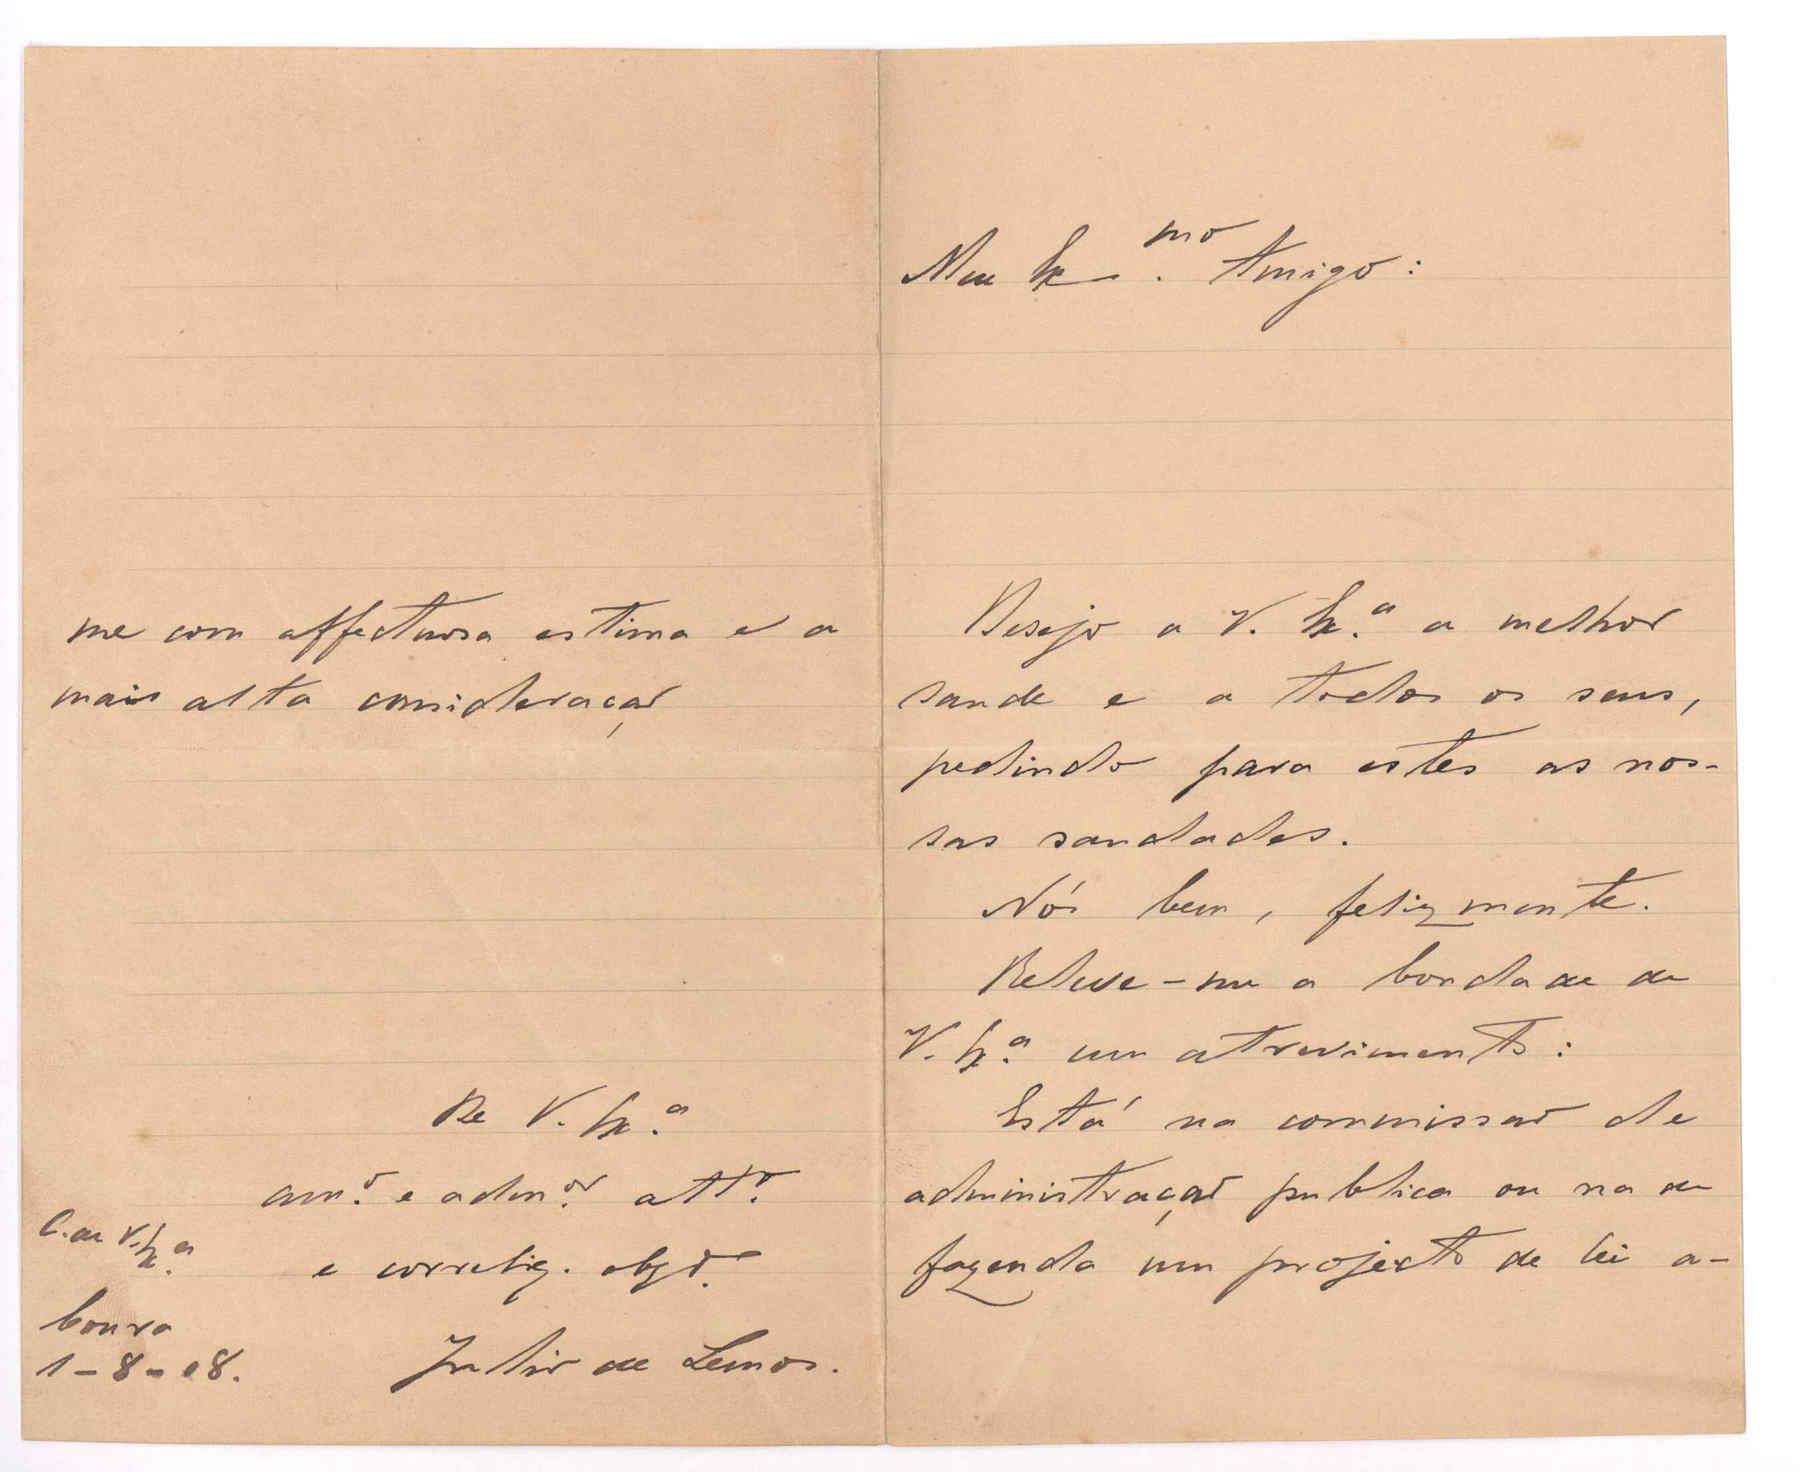 Meu Ex.mo Amigo:
Desejo a V. Ex.ª a melhor
saude e a todos os seus,
pedindo para estes as nos-
sas saudades.
Nós bem, felizmente.
Releve-me a bondade de
V. Ex.ª um atrevimento:
Está na commissão de
administração publica ou na de
fazenda um projecto de lei a-
me com affectuosa estima e a
mais alta consideração
De V. Ex.ª
am.º e adm.or att.º
e correlig. obgd.º
Julio de Lemos.
C. de V. Ex.ª
Coura
1-8-08.